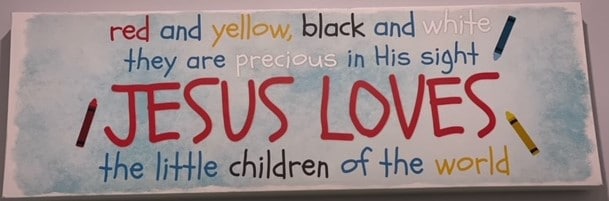 red and yellow, black and white
they are precious in His sight
JESUS LOVES
the little children of the world